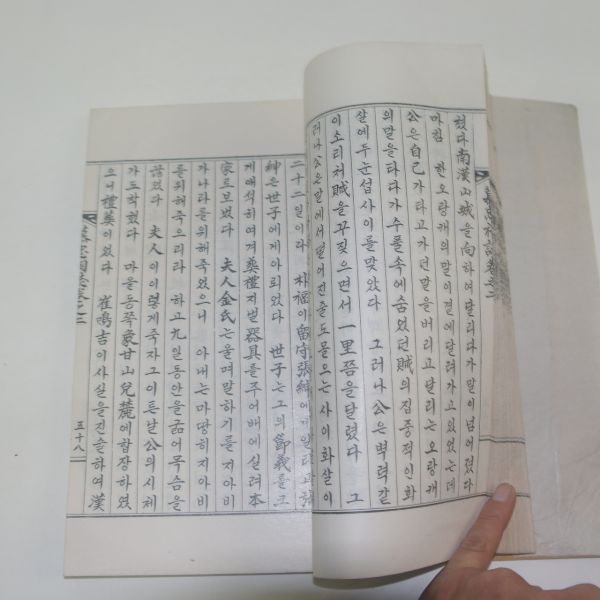 첬다 南漢山城을 向하여 달리다가 말이 넘어졌다
마침 한 오랑캐의 말이 곁에 달려가고 있었는데
公은 自己가 타고 가던 말을 버리고 달리는 오랑캐
의 말을 타다가 수풀속에 숨었던 賊의 집중적인 화
살에 두 눈섭 사이를 맞았다 그러나 公은 벽력같
이 소리쳐 賊을 꾸짖으면서 一里쯤을 달렸다 그
러나 公은 말에서 떨어진 줄도 몰으는 사이 화살이
二十二日이라 朴福이 留守 張紳에게
紳은 世子에게 아뢰었다 世子는 그의 節義를
게 애석히 여겨 葬禮 지낼 器具를 주어 배에 실려 本
家로 보냈다 夫人 金氏는 울며 말하기를 지아비
가 나라를 위해 죽었으니 아내는 마땅히 지아비
를 위해 죽으리라 하고 九일 동안을 굶어 목슴을
끊었다 夫人이 이렇게 죽자 그 이튿날 公의 시체
가 도착했다 마을 동쪽 象甘山 兌麓에 합장하였
으니 禮葬이었다 崔鳴吉이 사실을 진술하여 漢
三十八